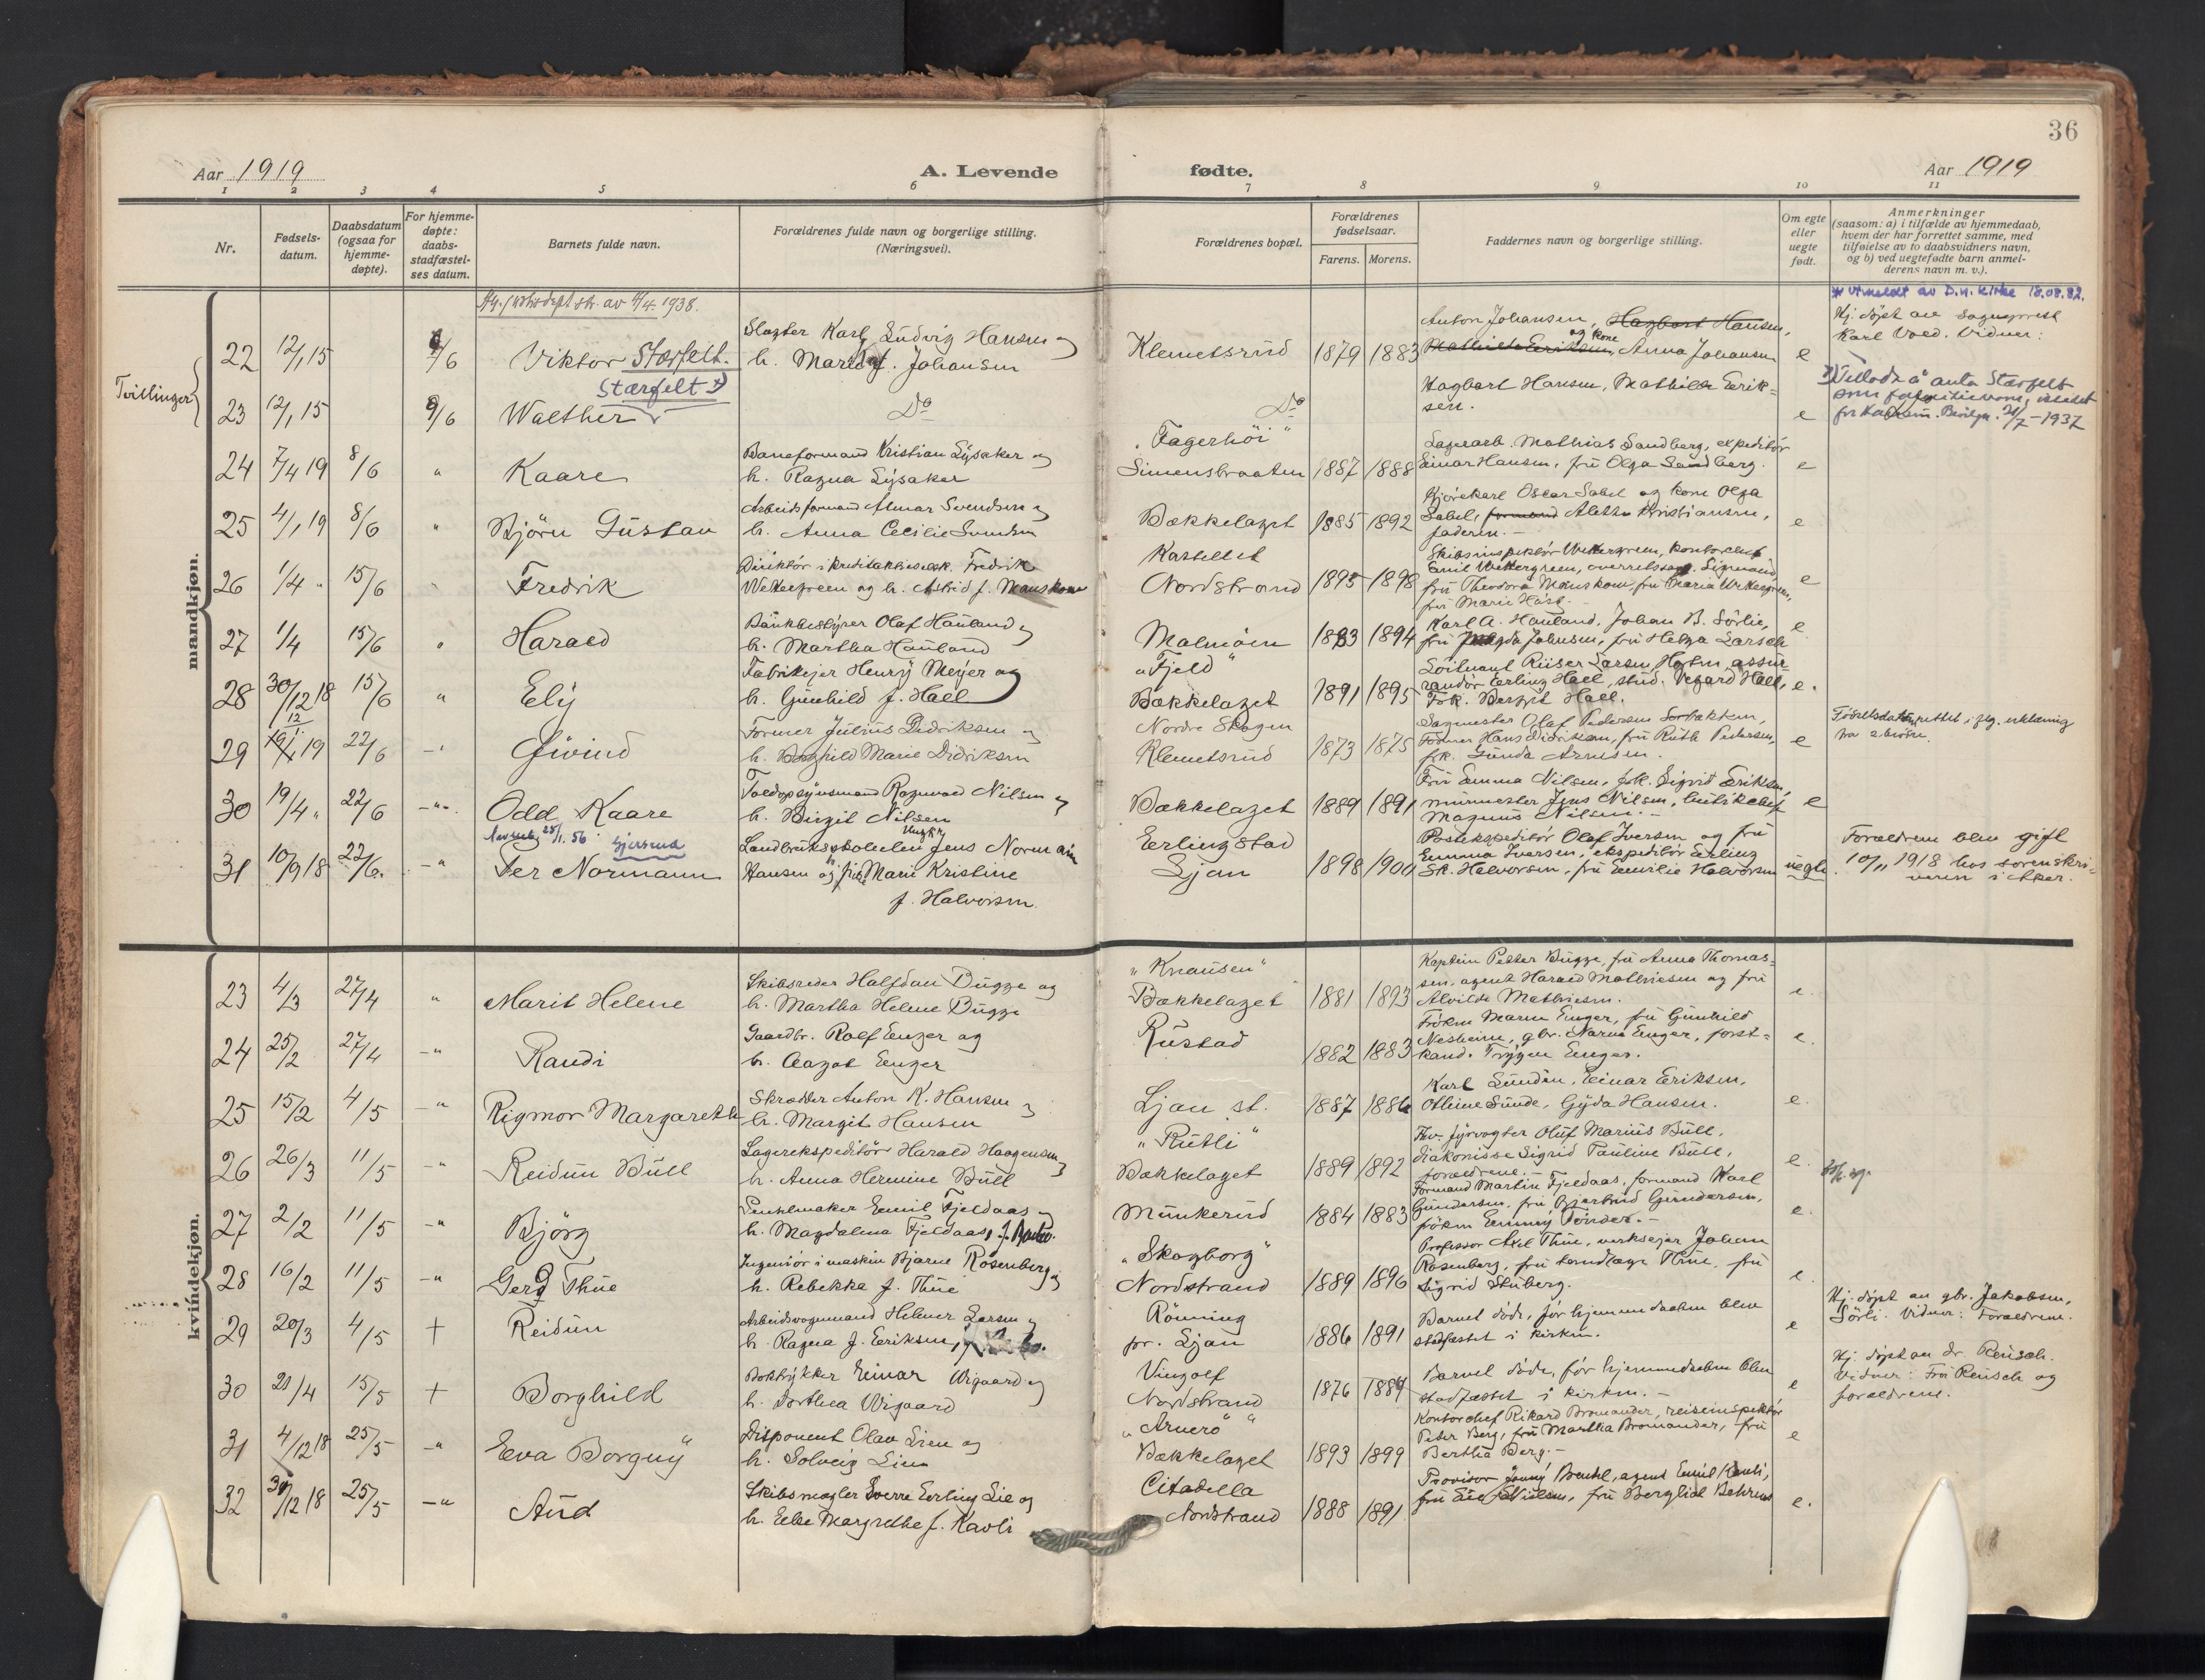 36
Aar 1919
A. Levende
fødte.
Aar 1919
1 2 3 4 5 6 7 8 9 10 11
Nr.
Fødsels-
datum.
Daabsdatum
(ogsaa for
hjemme-
døpte).
For hjemme-
døpte:
daabs-
stadfæstel-
ses datum.
Barnets fulde navn.
Forældrenes fulde navn og borgerlige stilling.
(Næringsvei).
Forældrenes bopæl.
Forældrenes
fødselsaar.
Farens. Morens.
Faddernes navn og borgerlige stilling.
Om egte
eller
uegte
født.
Anmerkninger
(saasom: a) i tilfælde av hjemmedaab,
hvem der har forrettet samme, med
tilføielse av to daabsvidners navn,
og b) ved uegtefødte barn anmel-
derens navn m. v.).
mandkjøn.
Tvillinger
av 4/4. 1938.
* Utmeldt av D.n. kirke 18.08.82.
22 12/1 15 8/6 Viktor Stærfelt.
Slagter Karl Ludvig Hansen og
h. Marie f. Johansen
Klemetsrud 1879 1883
Anton Johansen, Hagbart Hansen,
og kone
Mathilde Eriksen, Anna Johansen e
Hj. døpt av sogneprest
Karl Vold. Vidner:
23 12/1 15 8/6 Walther
Stærfelt
Do
Do
Hagbart Hansen, Mathilde Erik-
sen. e
Tillatt å anta Stærfelt
som familienavn, istedet
for Hansen. Bevilgn. 21/7-1937
24 7/4 19 8/6 " Kaare
Baneformand Kristian Lysaker og
h. Ragna Lysaker
"Fagerhöi"
Simensbraaten 1887 1888
Lagerarb. Mathias Sandberg, expeditör
Einar Hansen, fru Olga Sandberg. e
25 4/1 19 8/6 " Björn Gustav
Arbeidsformand Almar Svendsen og
h. Anna Cecilie Svendsen
Bækkelaget 1885 1892
Kjörekarl Oscar Sabel og kone Olga
Sabel, formand Alette Kristiansen,
faderen.- e
26 1/4 " 15/6 " Fredrik
Direktör i Fredrik
Wettergreen og h. Astrid f. Manskow
Kastellet
Nordstrand 1895 1898
Skibsinspektör Wettergreen, kontorchef
Emil Wettergreen, overretssagf. Sigmund
fru Theodora Manskow, fru Maria Wettergreen,
fru Marie Höst.- e
27 1/4 15/6 " Harald
Bankbestyrer Olaf Hauland og
h. Martha Hauland
Malmöen 1883 1894
Karl A. Hauland, Johan B. Sörlie,
fru Magda Johnsen, fru Helga Larsen e
28 30/12 18 15/6 " Ely
Fabrikejer Henry Meyer og
h. Gunhild f. Hall
"Fjeld"
Bækkelaget 1891 1895
Löitnant Riiser Larsen, Horten, assu-
randör Erling Hall, stud. Vegard Hall,
Frk. Bergit Hall. e.
29 12/1 19 22/6 -" Öivind
Former Julius Didriksen og
h. Borghild Marie Didriksen
Nordre Skogen
Klemetsrud 1873 1875
Sagmester Olaf Pedersen Sorbakken,
Former Hans Didriksen, fru Ruth Pedersen,
frk. Gunda Arnesen. e
Födselsdatum rettet i flg. erklæring
fra
30 19/4 " 22/6 -"- Odd Kaare
Toldopsynsmand Ragnvald Nilsen og
h. Birgit Nilsen
Bækkelaget 1889 1891
Fru Emma Nilsen, frk. Sigrid Eriksen,
murmester Jens Nilsen, butikchef
Magnus Nilsen.- e
31 10/9 18 22/6. -" Per Normann
25/1. 56 Gjersrud
Landbruksskoleelev Jens Normann
Hansen og Marie Kristine
f. Halvorsen.
Erlingstad
Ljan 1898 1900
Postekspeditör Olaf Iversen og fru
Emma Iversen, ekspeditör Erling
Sk. Halvorsen, fru Emilie Halvorsen uegte.
Foreldrene blev gift
10/11 1918 hos sorenskri-
veren i Aker.
kvindekjøn.
23 4/3 27/4 " Marit Helene
Skibsreder Halfdan Bugge og
h. Martha Helene Bugge
"Knausen"
Bækkelaget 1881 1893
Kaptein Petter Bugge, fru Anna Thomas-
sen, agent Harald Mathiesen og fru
Alvilde Mathiesen. e.
24 25/2 27/4 -" Randi
Gaardbr. Rolf Enger og
h. Aagot Enger
Rustad 1882 1883
Fröken Maren Enger, fru Gunhild
Nesheim, gbr. Narve Enger, forst-
kand. Trygve Enger. e.
25 15/2 4/5 -" Rigmor Margarethe
Skrædder Anton K. Hansen og
h. Margit Hansen
Ljan st. 1887 1886
Karl Sundin, Einar Eriksen,
Othine Sunde, Gyda Hansen. e.
26 26/3 11/5 -" Reidun Bull
Lagerekspeditör Harald Haagensen og
h. Anna Hermine Bull
"Rutli"
Bækkelaget 1889 1892
Fhv. fyrvogter Oluf Marius Bull,
diakonisse Sigrid Pauline Bull,
foreldrene.- e.
27 2/2 11/5 -" Björg
Penselmaker Emil Fjeldaas og
h. Magdalena Fjeldaas,
Munkerud 1884 1883
Formand Martin Fjeldaas, formand Karl
Gundersen, fru Bjertrud Gundersen,
fröken Emmy Tönder.- e.
28 16/2 11/5 -" Gerd Thue
Ingeniör i maskin Bjarne Rosenberg og
h. Rebekka f. Thue
"Skogborg"
Nordstrand 1889 1896
Professor Axel Thue, verksejer Johan
Rosenberg, fru tandlæge Thue, fru
Sigrid Stuberg. e
29 20/3 4/5 † Reidun
Arbeidsvognmand Helmer Larsen og
h. Ragna f. Eriksen,
Rönning
pr. Ljan 1886 1891
Barnet döde, för hjemmedaaben blev
stadfæstet i kirken. e
Hj. döpt av gbr. Jakobsen,
Sörli. Vidner: Foreldrene.
30 21/4 15/5 † Borghild
Boktrykker Einar Wigaard og
h. Dorthea Wigaard
Vingolf
Nordstrand 1876 1884
Barnet döde, för hjemmedaaben blev
stadfæstet i kirken.- e
Hj. döpt av dr. Reusch.
Vidner: Fru Reusch og
foreldrene.
31 4/12 18 25/5 -" Eva Borgny
Disponent Olav Lien og
h. Solveig Lien
"Arnerö"
Bækkelaget 1893 1899
Kontorchef Rikard Bromander, reiseinspektör
Peter Berg, fru Martha Bromander, fru
Bertha Berg.- e
32 30/12 18 25/5 -" Aud
Skibsmægler Sverre Erling Lie og
h. Else Margrethe f. Kavli
Citadella
Nordstrand 1888 1891
Provisor Jenny Bruhl, agent Emil Kavli,
fru Nielsen, fru Bergliot Behrens e.